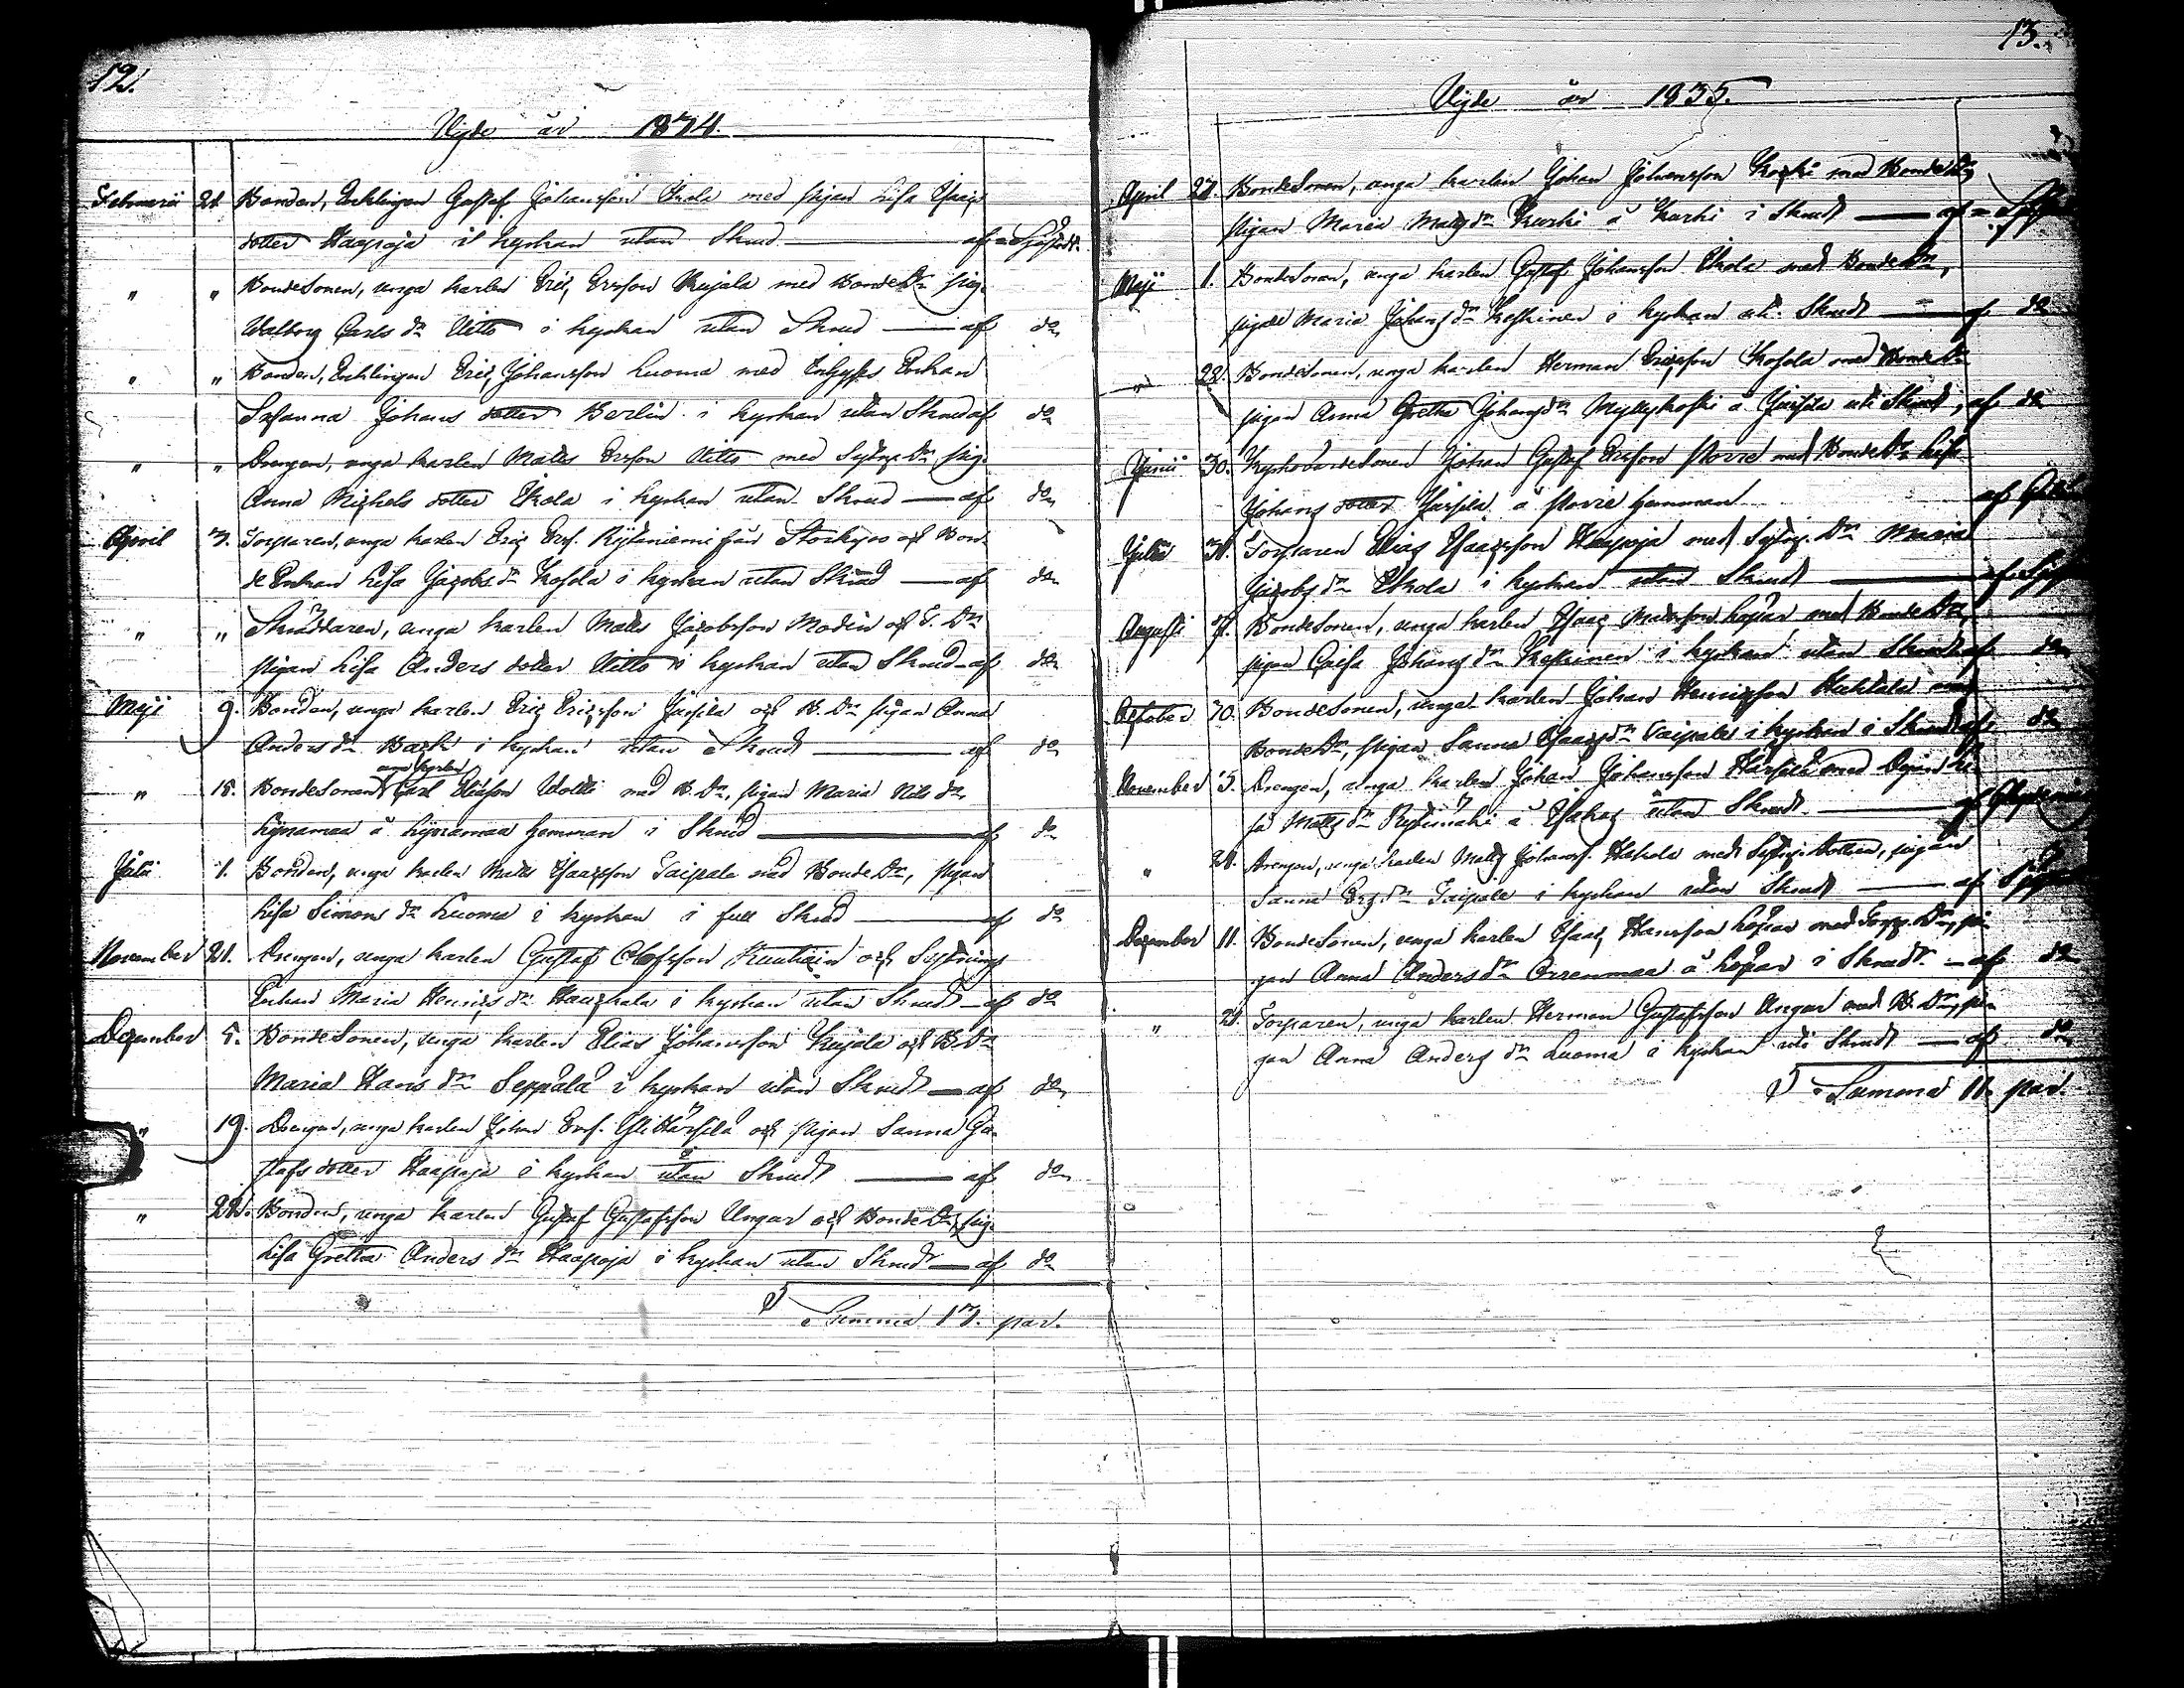 12.
Vigde år 1834.
Februari 21. Bonden, Enklingen Gustaf Johansson Skola med pigan Lisa Isacs
dotter Haapoja i kyrkan utan Skrud — af
" " BondeSonen, unga karlen Eric Ersson Kujala med BondeDn pig.
Walborg Carls dn Nitto i kyrkan utan Skrud — af do
" " Bonden, Enklingen Eric Johansson Luoma med Enkan
Susanna Johans dotter Berlin i kyrkan utan Skrud af do
" " Drengen, unga karlen Matts Ersson Nitto med Sytnings Dn pig.
Anna Michels dotter Skola i kyrkan utan Skrud — af do
April 3. Torparen, unga karlen Eric Erss. Rytiniemi från Storkyro och Bon-
de Enkan Lisa Jacobs dn Kosola i kyrkan utan Skrud — af do
" " Skräddaren, unga karlen Matts Jacobsson Modin och T. Dn
pigan Lisa Anders dotter Nitto i kyrkan utan Skrud — af do
Maji 9. Bonden, unga karlen Eric Ericsson Jäisilä och B. Dn pigan Anna
Anders dn i kyrkan utan Skrud — af do
unga karlen
" 18. BondeSonen Carl Eliasson med B. Dn, pigan Maria Nils dn
Lyysamaa å Lyysamaa hemman i Skrud — af do
Julii 1. Bonden, unga karlen Matts Isacsson Taipale med Bonde Dn, pigan
Lisa Simons dn Luoma i kyrkan i full Skrud — af do
November 21. Drengen, unga karlen Gustaf Olofsson och Sytnings
Enkan Maria Henrics dn i kyrkan utan Skrud — af do
December 5. BondeSonen, unga karlen Elias Johansson Kujala och B. Dn
Maria Hans dn Seppälä i kyrkan utan Skrud — af do
" 19. Drengen, unga karlen Johan Ersf. YliHärsilä och pigan Sanna Gu-
stafs dotter Haapoja i kyrkan utan Skrud — af do
" 28. Bonden, unga karlen Gustaf Gustafsson Ungar och Bonde Dn, pig.
Lisa Gretha Anders dn Haapoja i kyrkan utan Skrud — af do
Summa 13. par.
13.
Vigde år 1835.
April 21. BondeSonen, unga karlen Johan Johansson Koski med Bonde Dn,
pigan Maria Matts dn Kurki å Kurki i Skrud — af
Maji 1. BondeSonen, unga karlen Gustaf Johansson Skola med Bonde Dn,
pigan Maria Johans dn Keskinen i kyrkan uti Skrud — af do
" 22. BondeSonen, unga karlen Herman Ericsson Kosola med Bonde Dn
pigan Anna Gretha Johans dn Myllykoski å uti Skrud, af do
Junii 30. KyrkovärdeSonen Johan Gustaf Ersson Porre med Bonde Dn Lisa
Johans dotter Härsilä å Porre hemman af
Julii 31. Torparen Elias Isacsson Haapoja med Sytngs. Dn Maria
Jacobs dn Skola i kyrkan utan Skrud — af
Augusti BondeSonen, unga karlen Isac Mattsson Lopar med Bonde Dn,
pigan Caisa Johans dn Keskinen i kyrkan utan Skrud af do
October 30. BondeSonen, unga karlen Johan Henricsson Huhtala med
Bonde Dn, pigan Sanna Isacs dn Taipale i kyrkan i Skrud af do
November 5. Drengen, unga karlen Johan Johansson Härsilä med
Matts dn Rytimäki å utan Skrud — af
" 21. Drengen, unga karlen Matts Johanss. Hakola med Sytngs. dotter, pigan
Sanna Ers dn Taipale i kyrkan utan Skrud — af
December 11. BondeSonen, unga karlen Isac Hansson Lopar med Torp. Dn, pi-
gan Anna Anders dn Orrenmaa å Lopar i Skrud — af do
" 21. Torparen, unga karlen Herman Gustafsson Ungar med B. Dn, pi-
gan Anna Anders dn Luoma i kyrkan uti Skrud — af do
Summa 11. par.